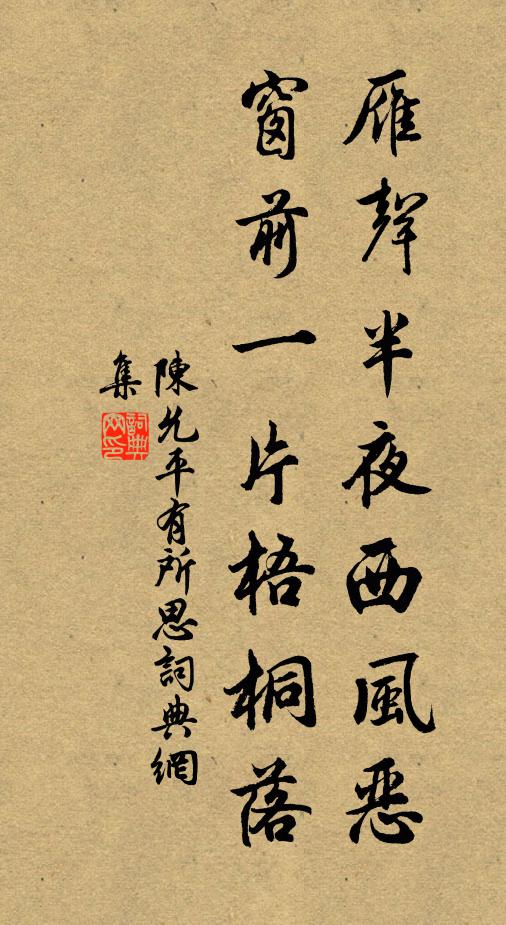 雁聲半夜西風惡
窗前一片梧桐落
陳允平有所思詞典網
集
詞典網印